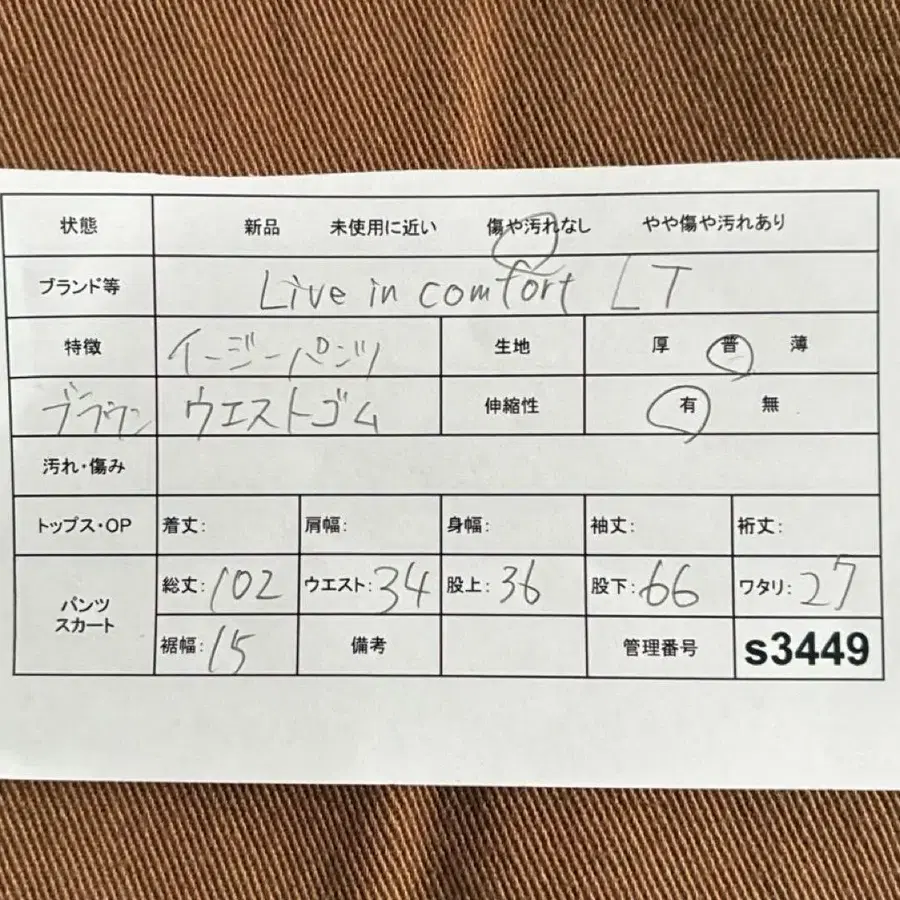 状態 新品 未使用に近い 傷や汚れなし やや傷や汚れあり
ブランド等 Live in comfort LT
特徴 イージーパンツ 生地 厚 普 薄
ブラウン ウエストゴム 伸縮性 有 無
汚れ・傷み
トップス・OP 着丈: 肩幅: 身幅: 袖丈: 裄丈:
パンツ スカート 総丈:102 ウエスト:34 股上:36 股下:66 ワタリ:27
裾幅:15 備考 管理番号 s3449